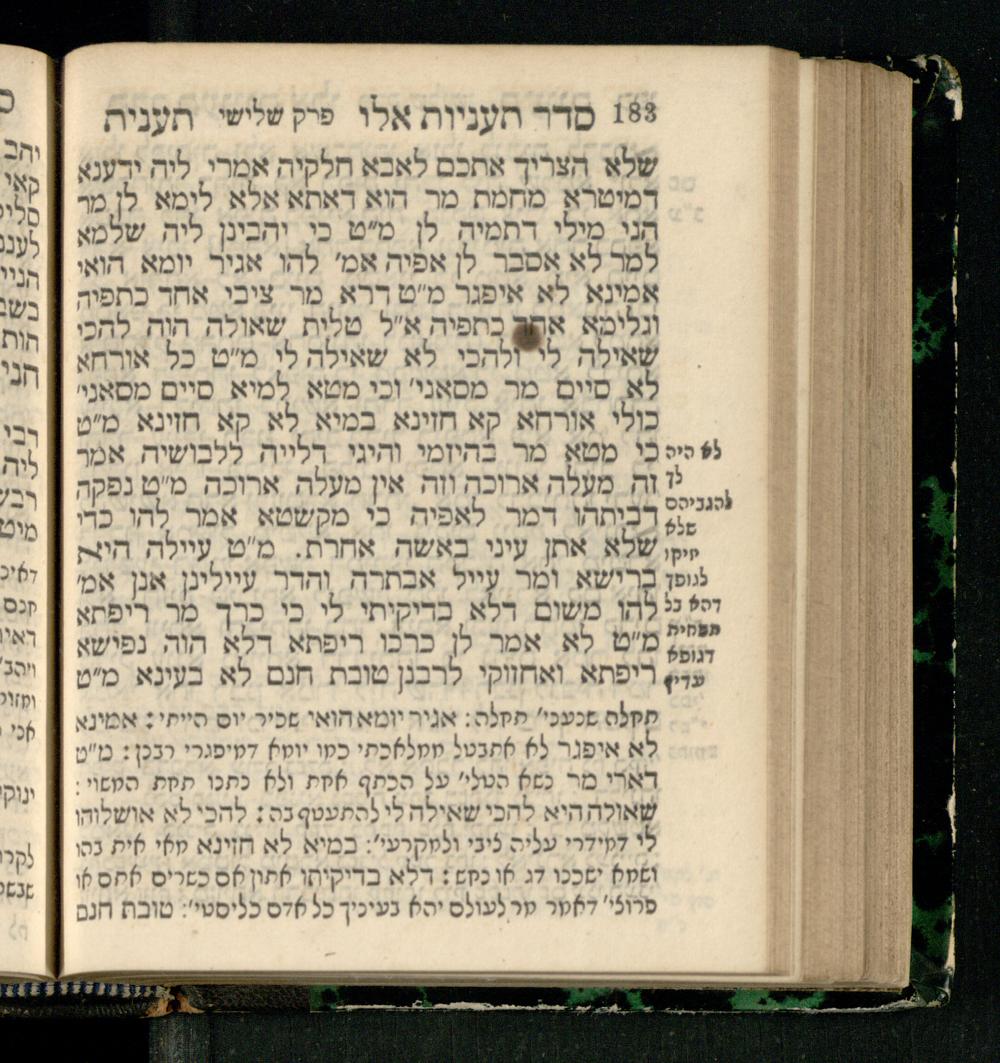 183 סדר תעניות אלו פרק שלישי תענית
שלא הצריך אתכם לאבא חלקיה אמרי ליה ידענא
דמיטרא מחמת מר הוא דאתא אלא לימא לן מר
הני מילי דתמיה לן מ״ט כי יהבינן ליה שלמא
למר לא אסבר לן אפיה אמ׳ להו אגיר יומא הואי
אמינא לא איפגר מ״ט דרא מר ציבי אחד כתפיה
וגלימא אחד כתפיה א״ל טלית שאולה הוה להכי
שאילה לי ולהכי לא שאילה לי מ״ט כל אורחא
לא סיים מר מסאני׳ וכי מטא למיא סיים מסאני׳
כולי אורחא קא חזינא במיא לא קא חזינא מ״ט
כי מטא מר בהיזמי והיגי דלייה ללבושיה אמר
זה מעלה ארוכה וזה אין מעלה ארוכה מ״ט נפקה
דביתהו דמר לאפיה כי מקשטא אמר להו כדי
שלא אתן עיני באשה אחרת. מ״ט עיילה היא
ברישא ומר עייל אבתרה והדר עיילינן אנן אמ׳
להו משום דלא בדיקיתי לי כי כרך מר ריפתא
מ״ט לא אמר לן כרכו ריפתא דלא הוה נפישא
ריפתא ואחזוקי לרבנן טובת חנם לא בעינא מ״ט
לא היה
לך
להגביהם
שלא
יזיקו
לגופך
דהא כל
תמחית
דגופא
עדיף
תקלה שכעכי׳ תקלה: אגיר יומא הואי שכיר יום הייתי: אמינא
לא איפגר לא אתבטל ממלאכתי כמו יומא דמיפגרי רבנן: מ״ט
דארי מר נשא הטלי׳ על הכתף אחת ולא נתנו תחת המשוי:
שאולה היא להכי שאילה לי להתעטף בה: להכי לא אושלוהו
לי דמידרי עליה ציבי ולמקרעי׳: במיא לא חזינא מאי אית בהו
ושמא ישכנו דג או נחש: דלא בדיקיתו אתון אם כשרים אתם או
פרוצי׳ דאמר מר לעולם יהא בעיניך כל אדם כליסטי׳: טובת חנם